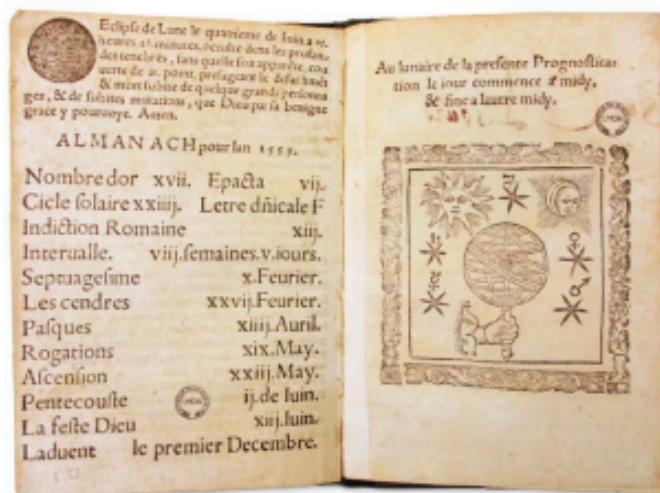 Eclipse de Lune le quatrieme de Iuin a
heures minutes, occulte dens les profun-
des tenebres, sans quelle soit apparéte, cou
uerte de point, presageant le
& mort subite de quelque grands personna
ges, & de subites mutations, que Dieu par sa benigne
grace y pouruoye. Amen.
ALMANACH pour lan 1555.
Nombre dor xvii. Epacta vij.
Cicle solaire xxiiij. Letre dñicale F
Indiction Romaine xiij.
Interualle. viij. semaines. v. iours.
Septuagesime x. Feurier.
Les cendres xxvij. Feurier.
Pasques xiiij. Auril.
Rogations xix. May.
Ascension xxiij. May.
Pentecouste ij. de Iuin.
La feste Dieu xiij. Iuin.
Laduent le premier Decembre.
Au lunaire de la presente Prognostica-
tion le iour commence a midy,
& fine a lautre midy.